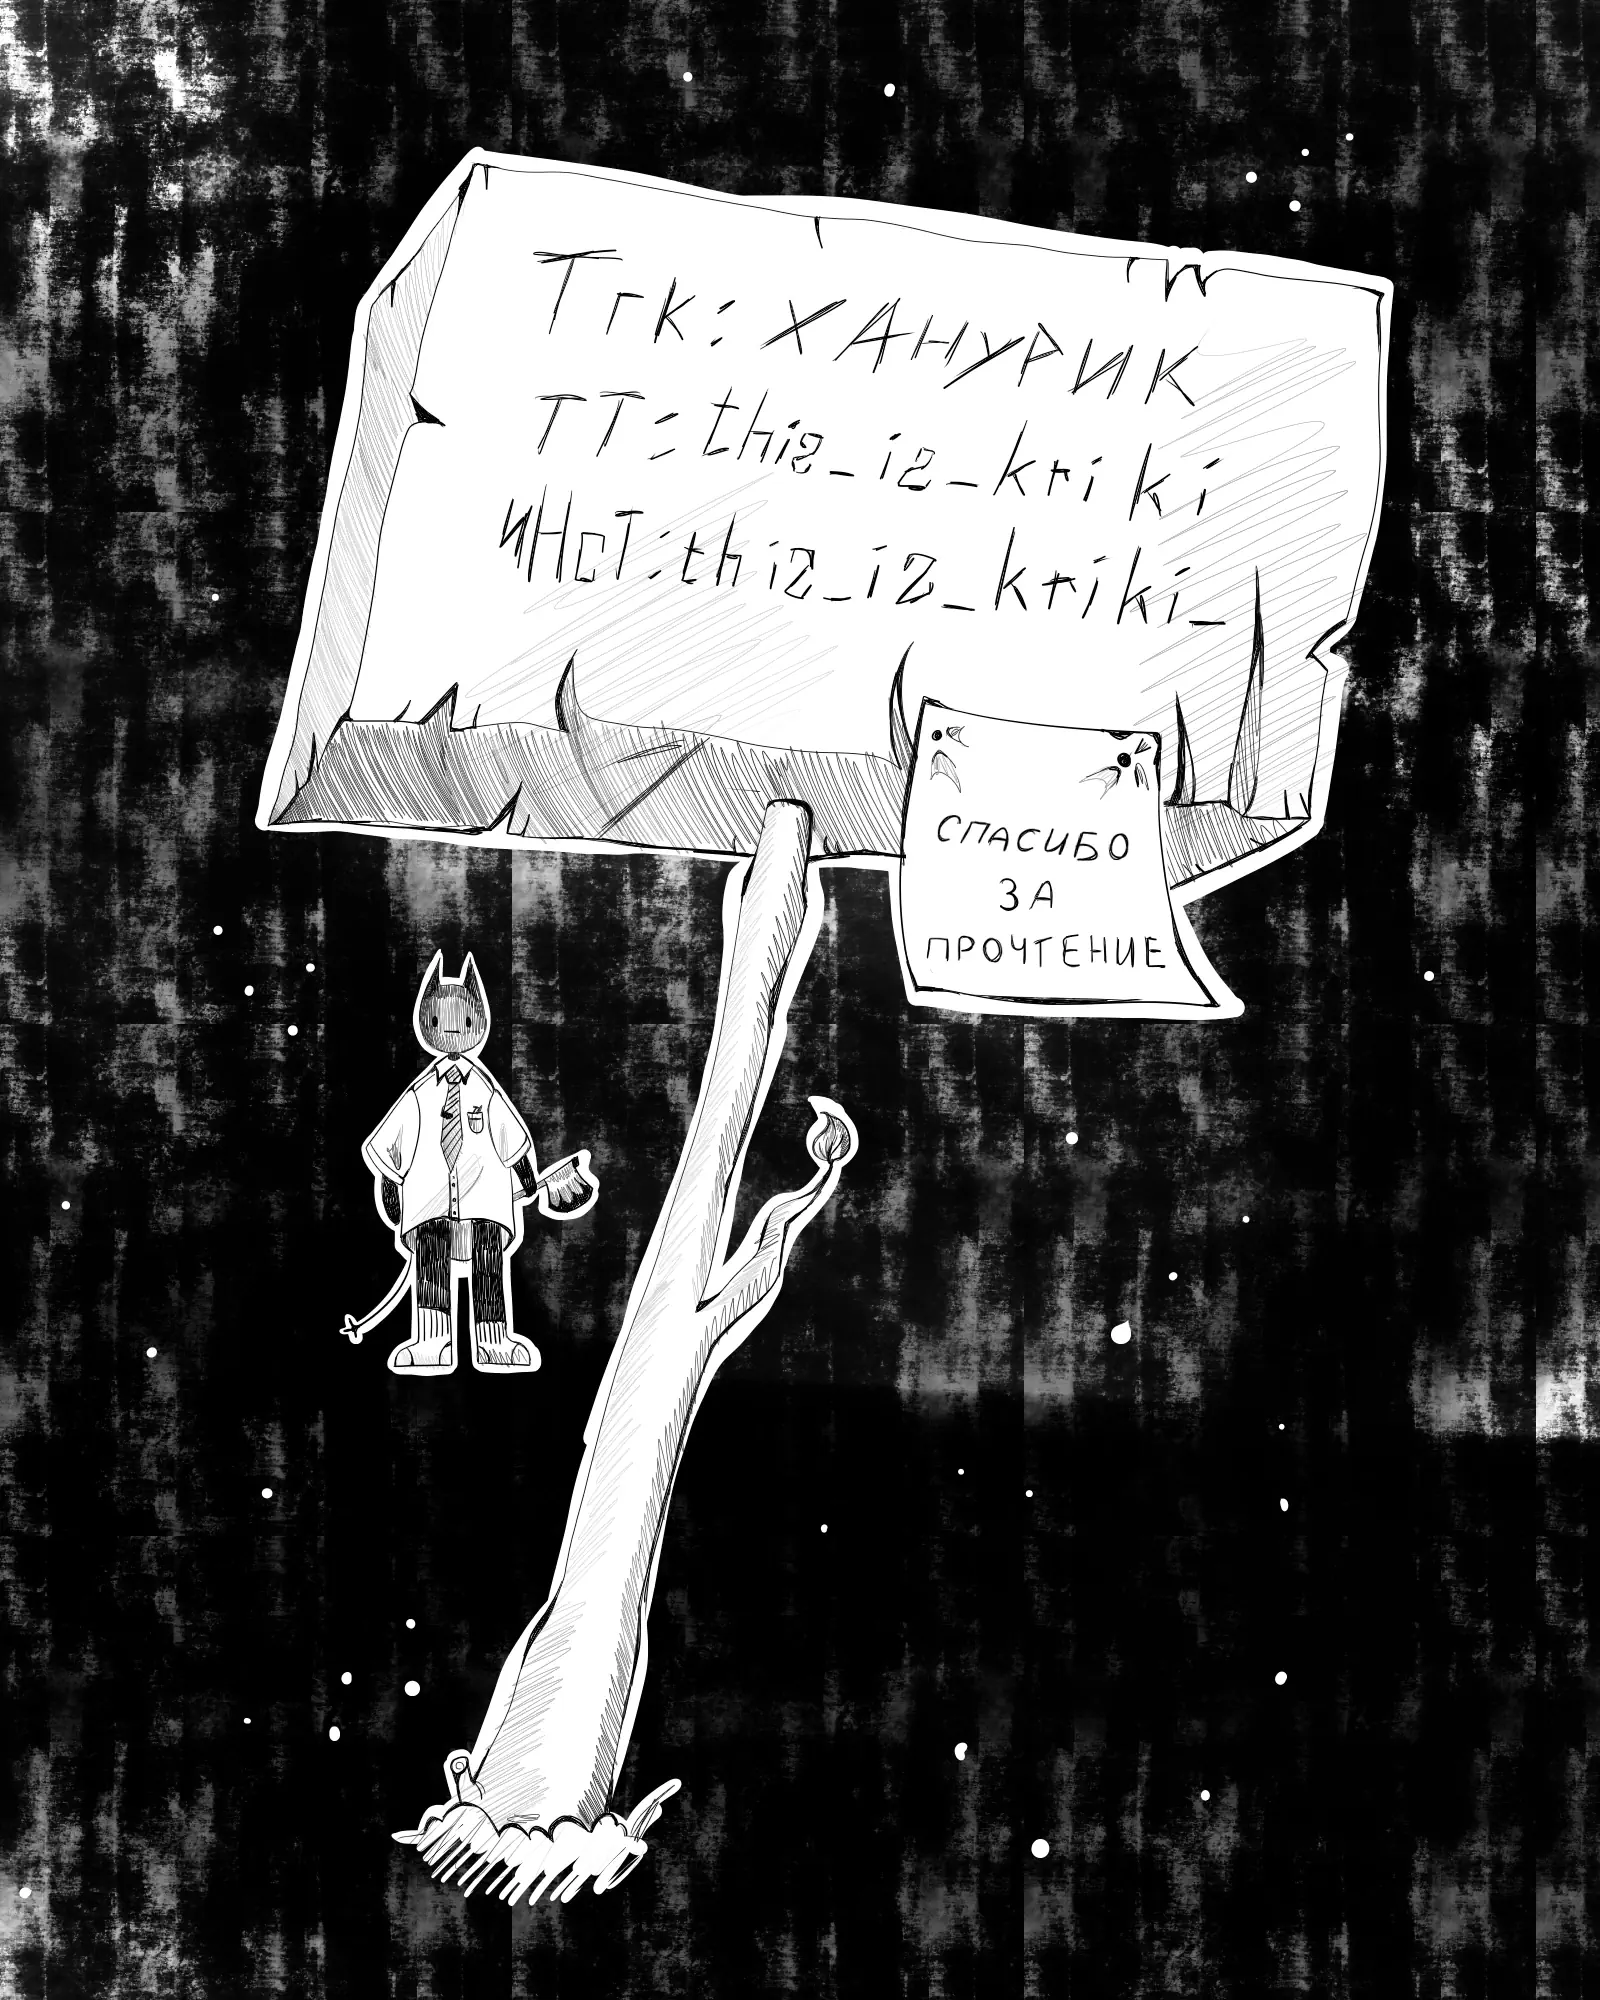 Тгк: ХАНУРИК
ТТ: thiz_iz_kriki
ИНсТ: thiz_iz_kriki_
СПАСИБО
ЗА
ПРОЧТЕНИЕ